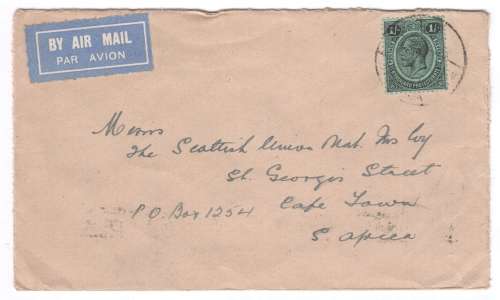 BY AIR MAIL
PAR AVION
1/- 1/-
NYASALAND PROTECTORATE
Messrs
The Scottish Union Nat. Ins Coy
St. Georges Street
P.O. Box 1254 Cape Town
S. Africa